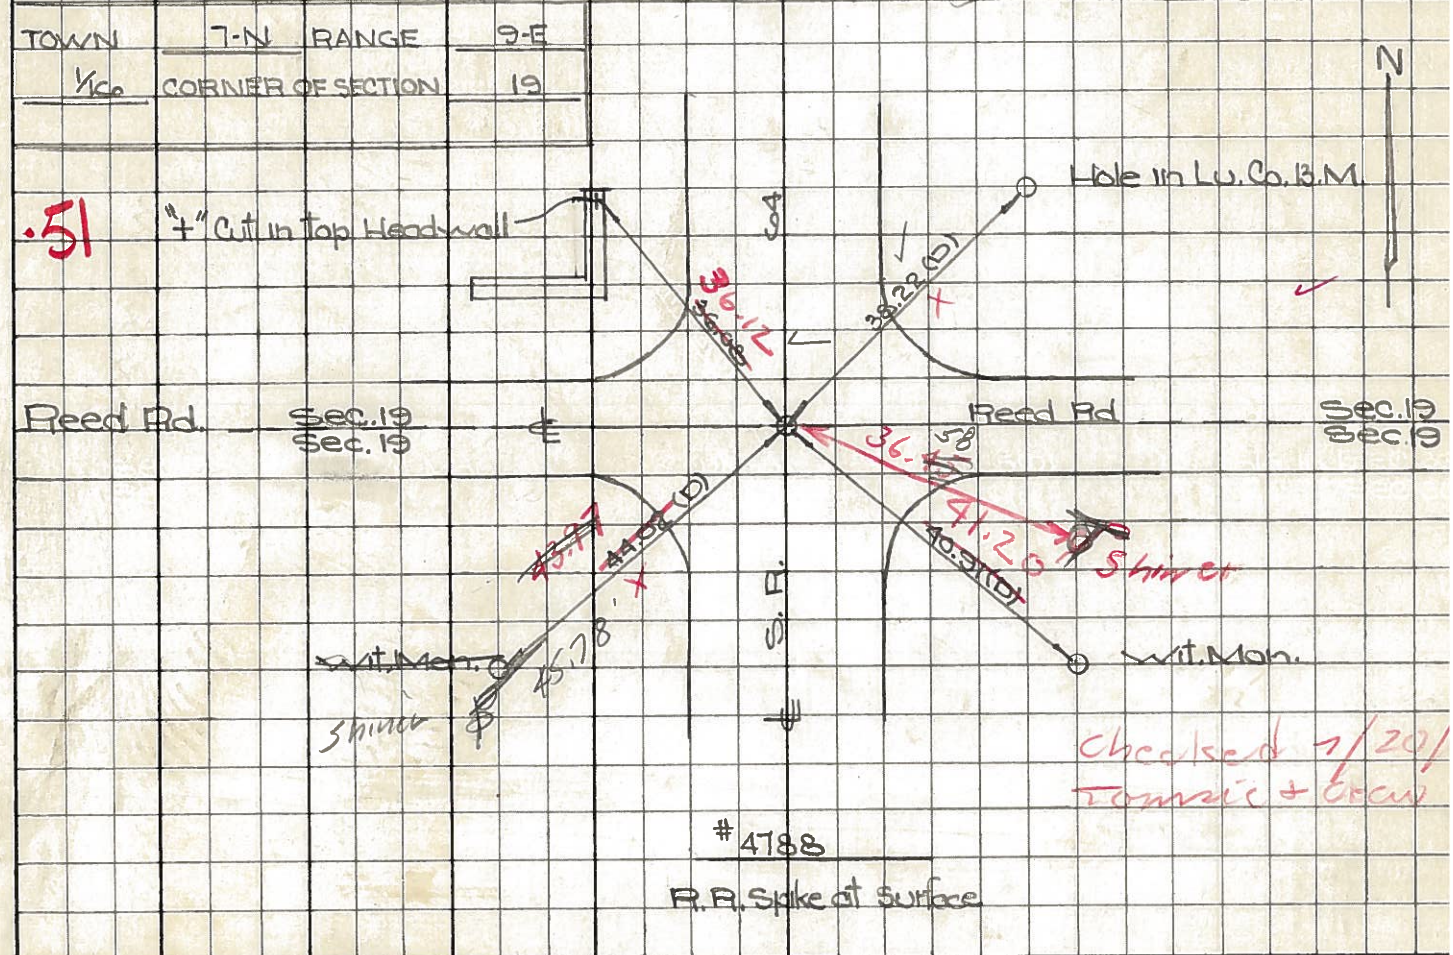 TOWN 7-N RANGE 9-E
1/16 CORNER OF SECTION 19
N
.51
"+" Cut in top Headwall
Hole in Lu. Co. B.M.
64
38.22 (D)
+
36.12
36.08
Reed Rd.
Sec. 19
Sec. 19
℄
Reed Rd
Sec. 19
Sec. 19
36.
58
41.20
40.97(D)
Shiner
43.97
44.02 (D)
x
45.78'
S. R.
℄
Wit. Mon.
Shiner
Wit. Mon.
Checked 7/20/
Tommie + Crew
# 4788
R.R. Spike at Surface